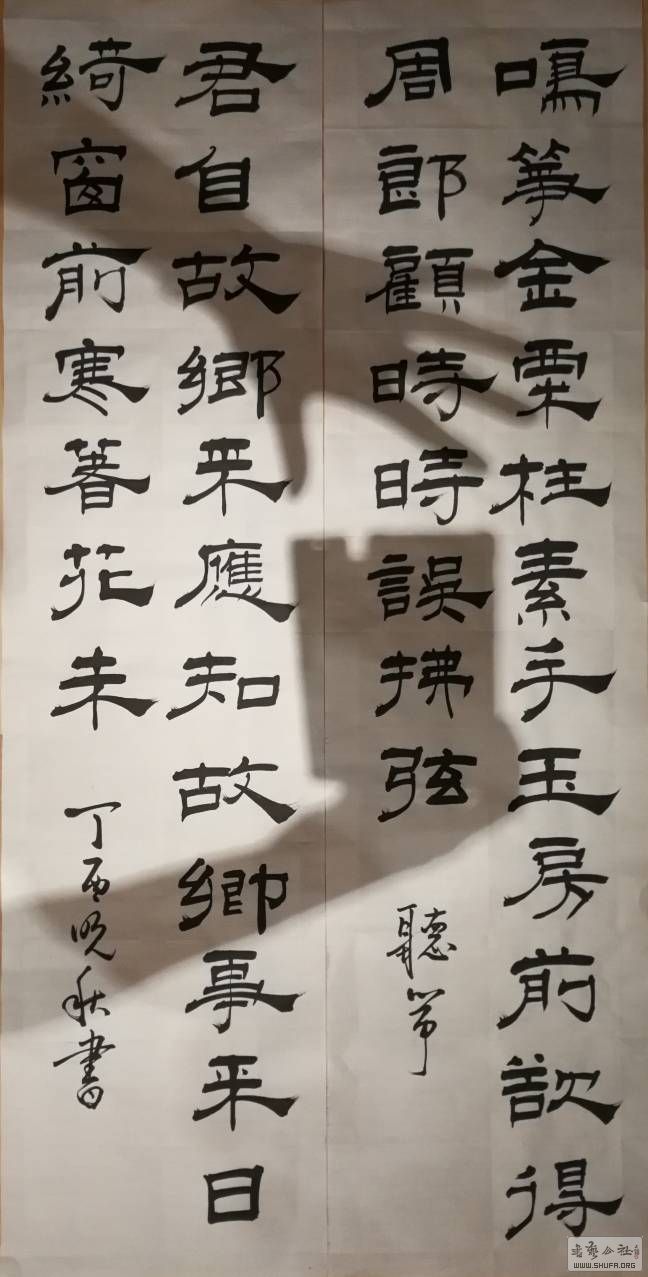 鳴箏金栗柱素手玉房前欲得
周郎顧時時誤拂弦 聽箏
君自故鄉来應知故鄉事来日
綺窗前寒著花未 丁酉晚秋書
書藝公社
WWW.SHUFA.ORG